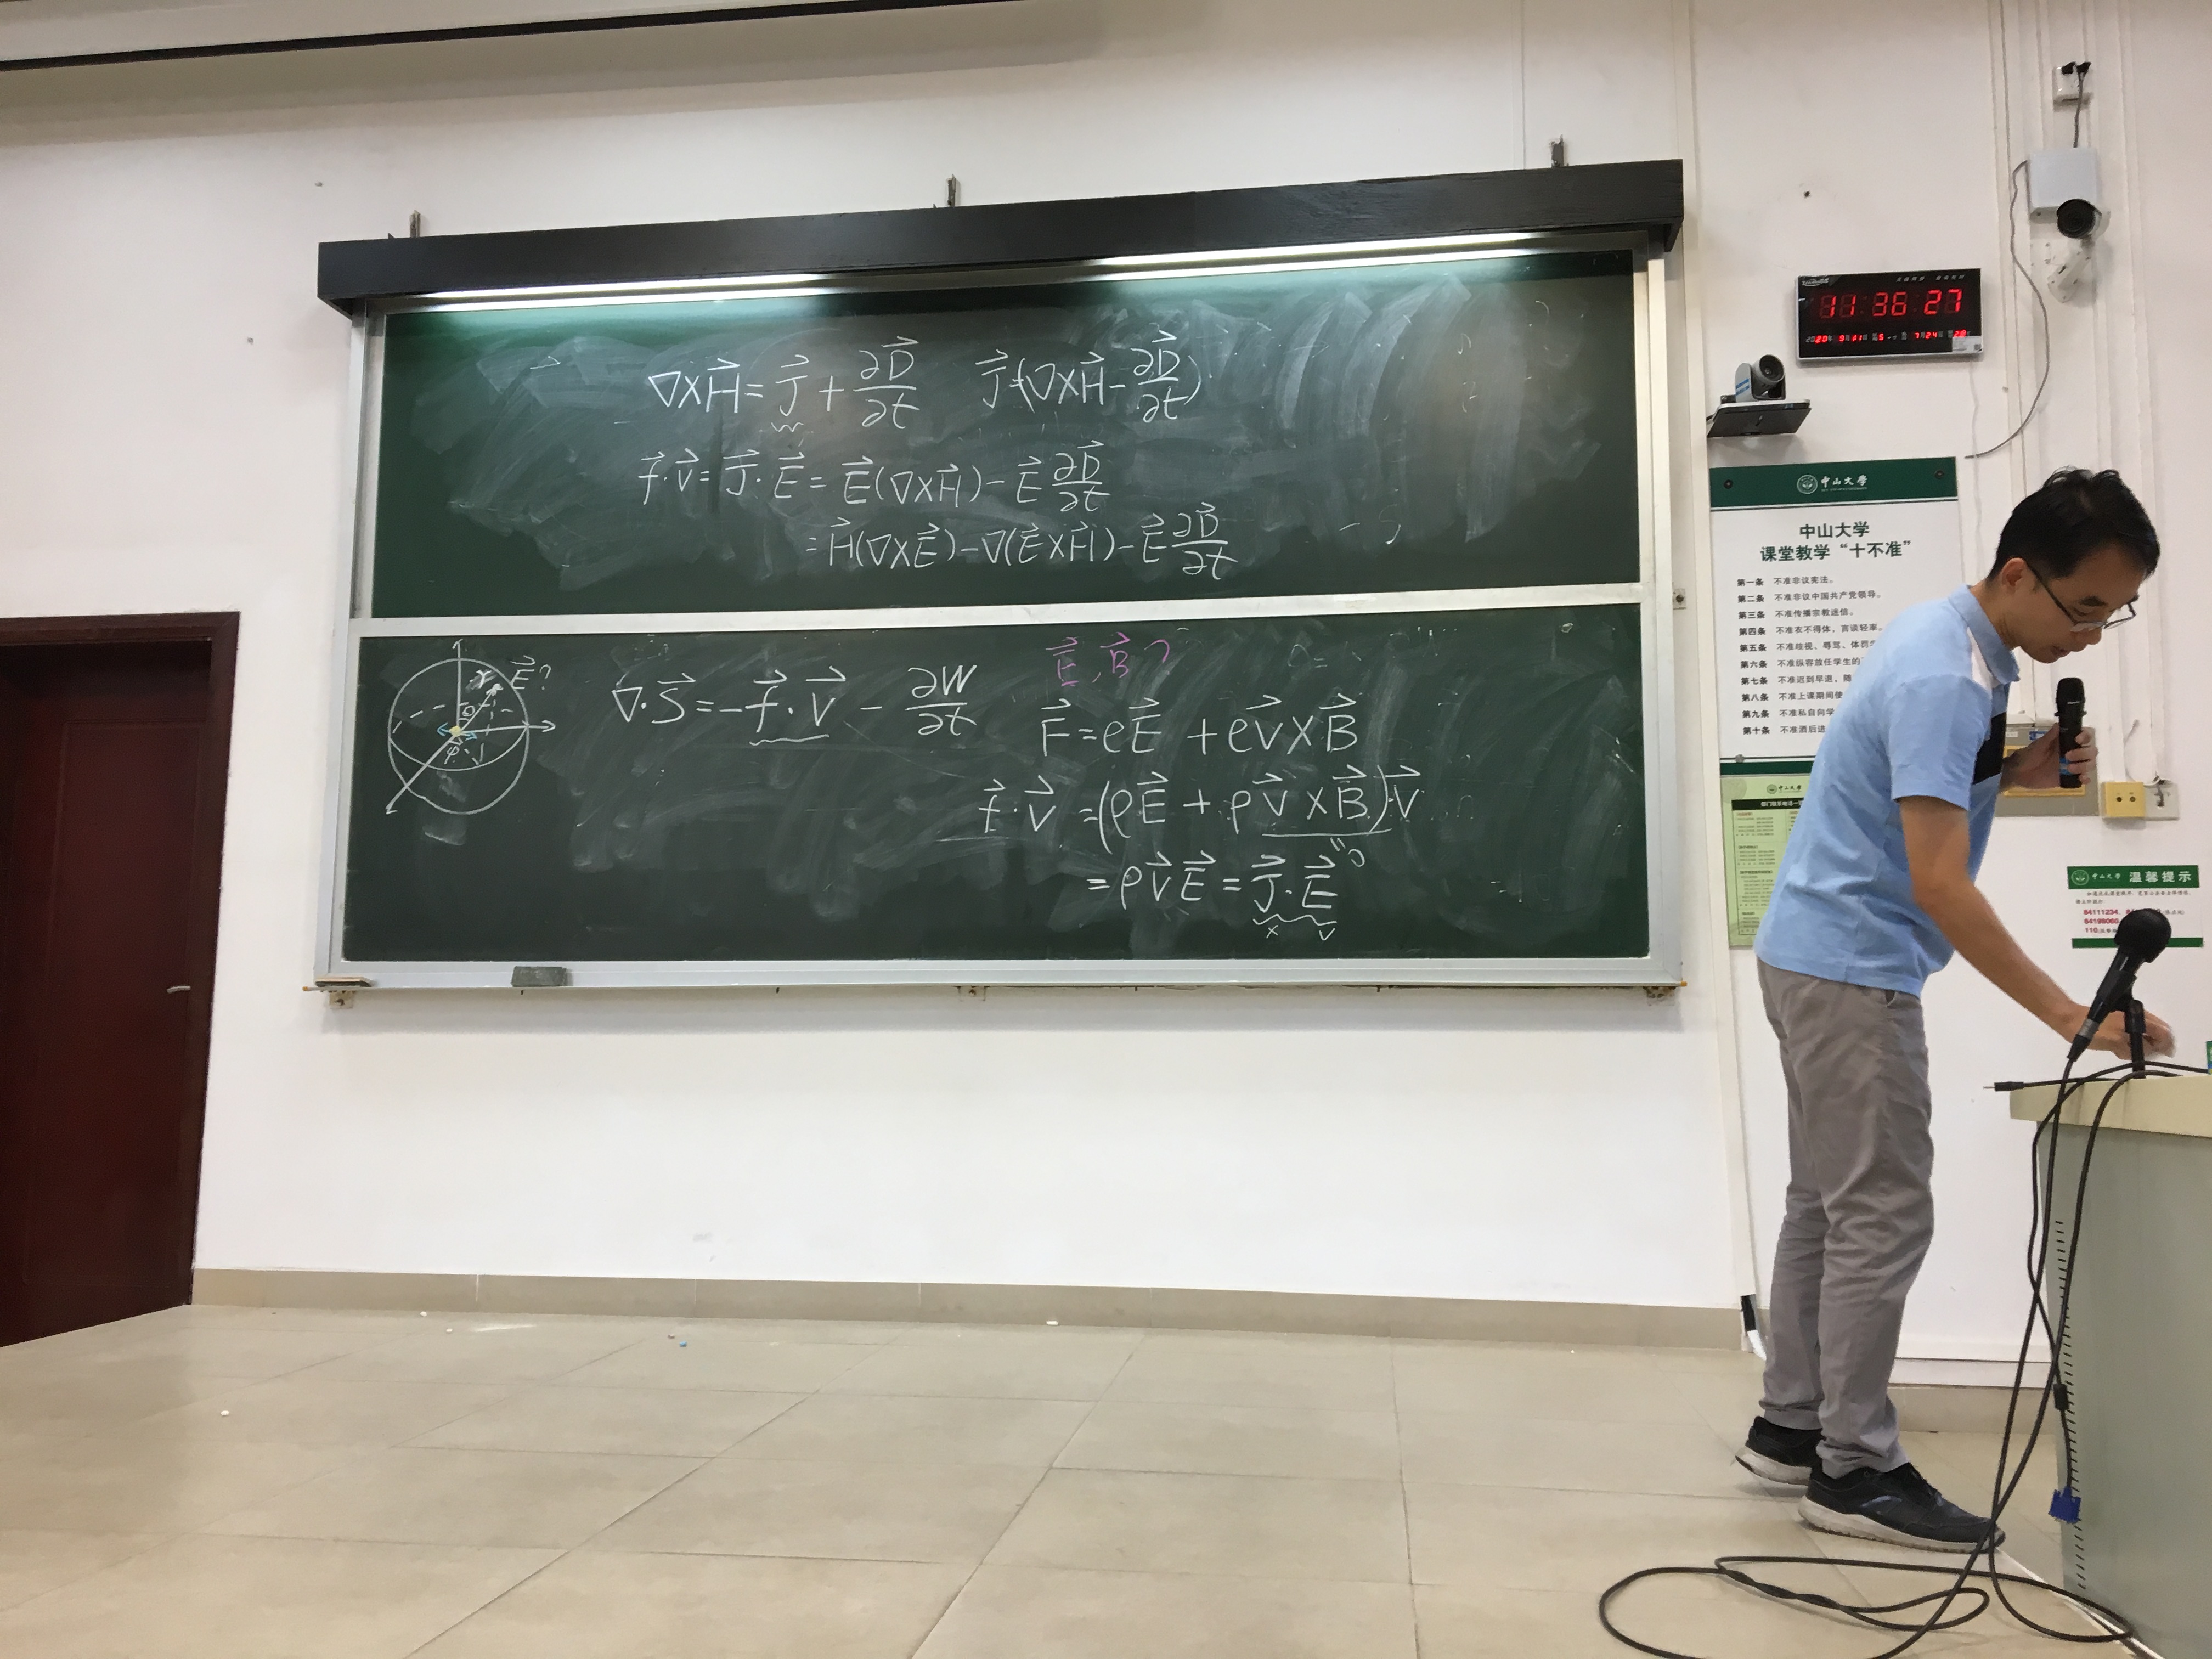 ∇×H⃗ = J⃗ + ∂D⃗/∂t   J⃗=(∇×H⃗−∂D⃗/∂t)
f⃗·v⃗ = J⃗·E⃗ = E⃗(∇×H⃗) − E⃗ ∂D⃗/∂t
= H⃗(∇×E⃗) − ∇(E⃗×H⃗) − E⃗ ∂D⃗/∂t
E⃗?
r
θ
φ
∇·S⃗ = −f⃗·v⃗ − ∂W/∂t
E⃗,B⃗?
F⃗ = eE⃗ + ev⃗×B⃗
f⃗·v⃗ = (ρE⃗ + ρv⃗×B⃗)·v⃗
"0
= ρv⃗E⃗ = J⃗·E⃗
x v
11:36:27
2020年 9月11日 5 7月24日 28
中山大学
中山大学
课堂教学“十不准”
第一条 不准非议宪法。
第二条 不准非议中国共产党领导。
第三条 不准传播宗教迷信。
第四条 不准衣不得体，言谈轻率。
第五条 不准歧视、辱骂、体罚
第六条 不准纵容放任学生的
第七条 不准迟到早退，随
第八条 不准上课期间使
第九条 不准私自向学
第十条 不准酒后进
中山大学
中山大学 温馨提示
84111234
84198069
110